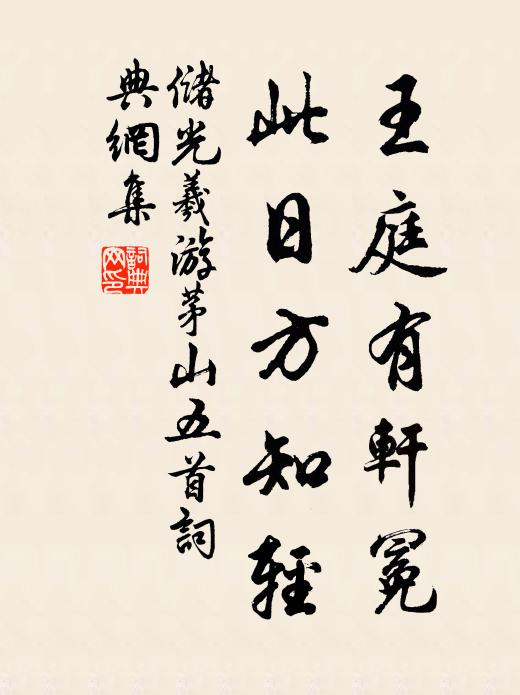 王庭有軒冕
此日方知輕
儲光羲游茅山五首詞
典網集
詞典網印